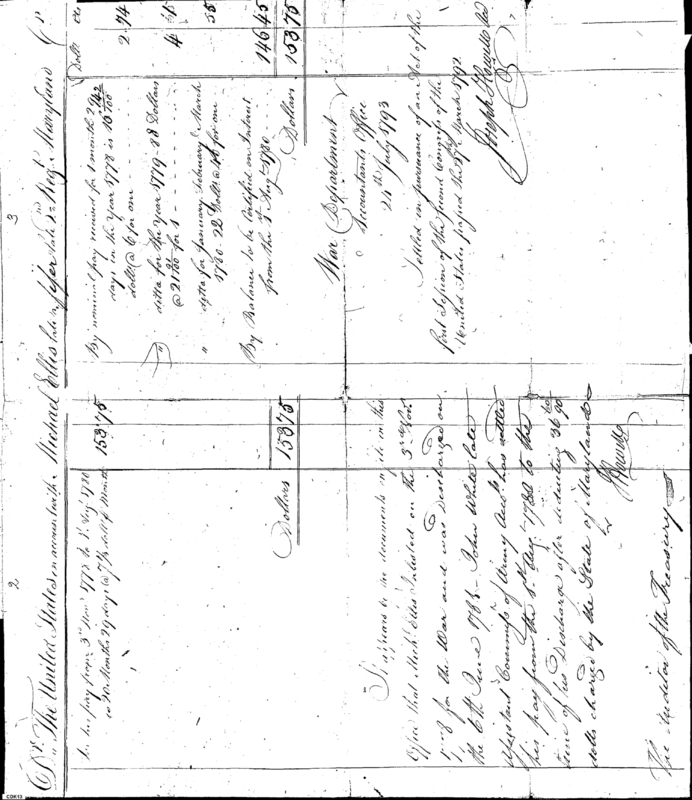 2
3
Dr. The United States in account with Michael Ellis late a fifer late 2d Reg.t Maryland Cr.
Dolls cts
To his pay from 3rd Nov.r 1777 to 1st Aug.t 1780
is 32 Months 29 days @ 7 1/3 dolls p Month
153.75
Dollars 153.75
By nominal pay received for 1 month
days in the Year 1778 is
dolls @ 6 for one
2.74
ditto for the Year 1779 88 Dollars
@ 21 for 1
4
ditto for January February & March
1780 22 Dolls @ 40 for one
55
By Balance to be Certified on Interest
from the 1st Aug.t 1780
146.45
Dollars 153.75
It appears by the documents on file in this
Office that Mich.l Ellis Inlisted on the 3rd Nov.r
for the War and was discharged on
the 6th June 1783. John White late
Assistant Commiss.r of Army Acc.ts has settled
his pay from the 1st Aug.t 1780 to the
time of his Discharge after deducting 36 90
dolls charged by the State of Maryland
J Howell
The Auditor of the Treasury
War Department
Accountants Office
24th July 1793
Settled in pursuance of an Act of the
first Session of the second Congress of the
United States passed the 27th March 1792
Joseph Howell
CDK13